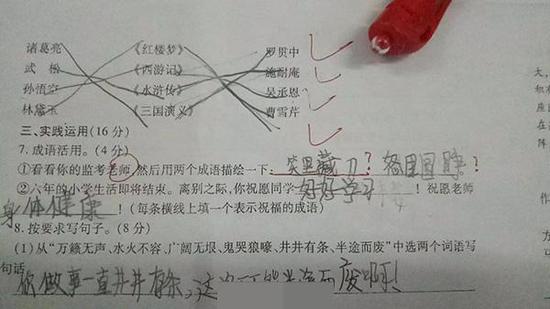 诸葛亮 《红楼梦》 罗贯中
武松 《西游记》 施耐庵
孙悟空 《水浒传》 吴承恩
林黛玉 《三国演义》 曹雪芹
三、实践运用(16 分)
7. 成语活用。(4 分)
①看看你的监考老师,然后用两个成语描绘一下: 笑里藏刀?
②六年的小学生活即将结束。离别之际,你祝愿同学 好好学习 !祝愿老师
身体健康 !(每条横线上填一个表示祝福的成语)
8. 按要求写句子。(8 分)
(1)从“万籁无声、水火不容、广阔无垠、鬼哭狼嚎、井井有条、半途而废”中选两个词语写
句话
你做事一直井井有条,这 废啊!
大,
积